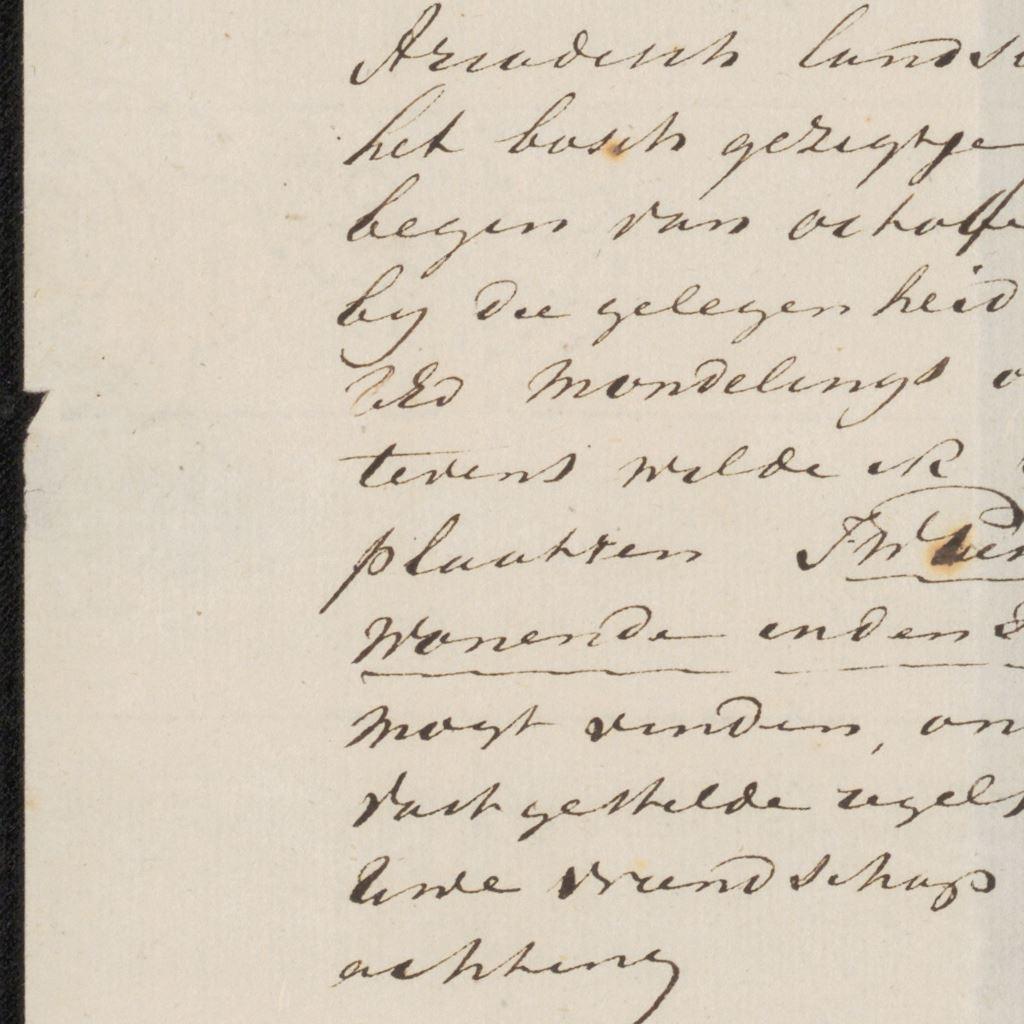 Arcadisch lands
het bosch gezigtje
begin van octob
by die gelegenheid
UEd mondelings
tevens wilde ik
plaatsen
wonende in den
mogt vinden, on
vast gestelde regels
Uwe vriendschap
achting